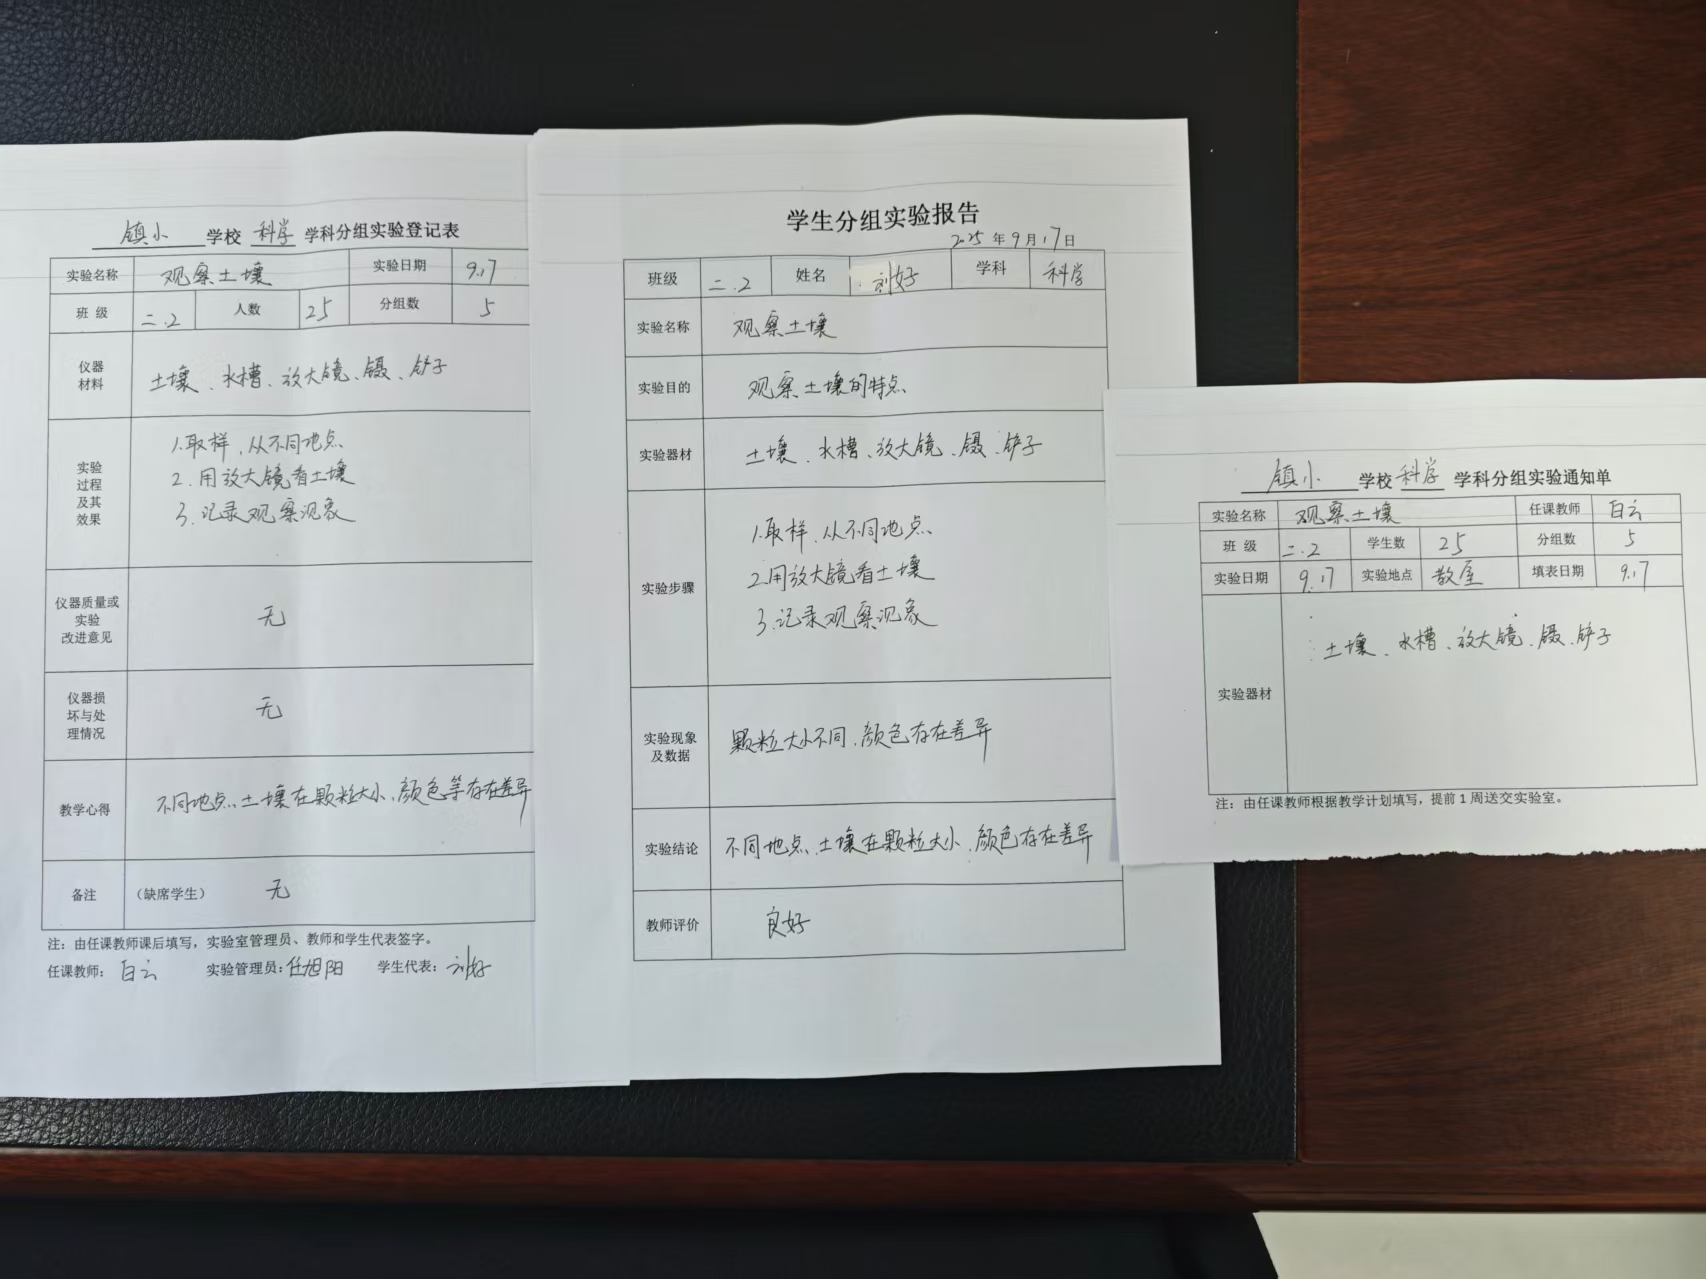 镇小 学校 科学 学科分组实验登记表
实验名称 观察土壤 实验日期 9.17
班 级 二.2 人数 25 分组数 5
仪器
材料
土壤、水槽、放大镜、镊、铲子
实验
过程
及其
效果
1.取样,从不同地点
2.用放大镜看土壤
3.记录观察现象
仪器质量或
实验
改进意见
无
仪器损
坏与处
理情况
无
教学心得 不同地点、土壤在颗粒大小、颜色等存在差异
备注 (缺席学生) 无
注:由任课教师课后填写,实验室管理员、教师和学生代表签字。
任课教师: 白云 实验管理员:任旭阳 学生代表: 刘好
学生分组实验报告
2025 年 9 月 17 日
班级 二.2 姓名 刘好 学科 科学
实验名称 观察土壤
实验目的 观察土壤的特点
实验器材 土壤、水槽、放大镜、镊、铲子
实验步骤
1.取样、从不同地点
2.用放大镜看土壤
3.记录观察现象
实验现象
及数据
颗粒大小不同、颜色存在差异
实验结论 不同地点、土壤在颗粒大小、颜色存在差异
教师评价 良好
镇小 学校 科学 学科分组实验通知单
实验名称 观察土壤 任课教师 白云
班 级 二.2 学生数 25 分组数 5
实验日期 9.17 实验地点 教室 填表日期 9.17
实验器材 土壤、水槽、放大镜、镊、铲子
注:由任课教师根据教学计划填写,提前1周送交实验室。